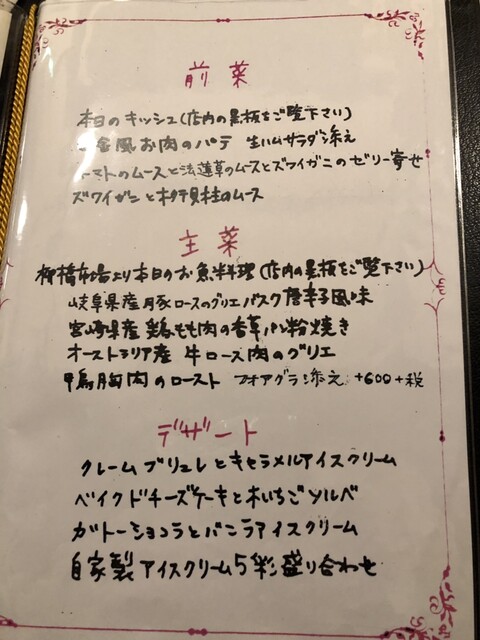 前菜
本日のキッシュ(店内の黒板をご覧下さい)
風お肉のパテ 生ハムサラダ添え
トマトのムースと法蓮草のムースとズワイガニのゼリー寄せ
ズワイガニと帆立貝柱のムース
主菜
柳橋市場より本日のお魚料理(店内の黒板をご覧下さい)
岐阜県産豚ロースのグリエバスク唐辛子風味
宮崎県産鶏もも肉の香草パン粉焼き
オーストラリア産 牛ロース肉のグリエ
鴨胸肉のロースト フォアグラ添え +600+税
デザート
クレームブリュレとキャラメルアイスクリーム
ベイクドチーズケーキと木いちごソルベ
ガトーショコラとバニラアイスクリーム
自家製アイスクリーム5彩盛り合わせ